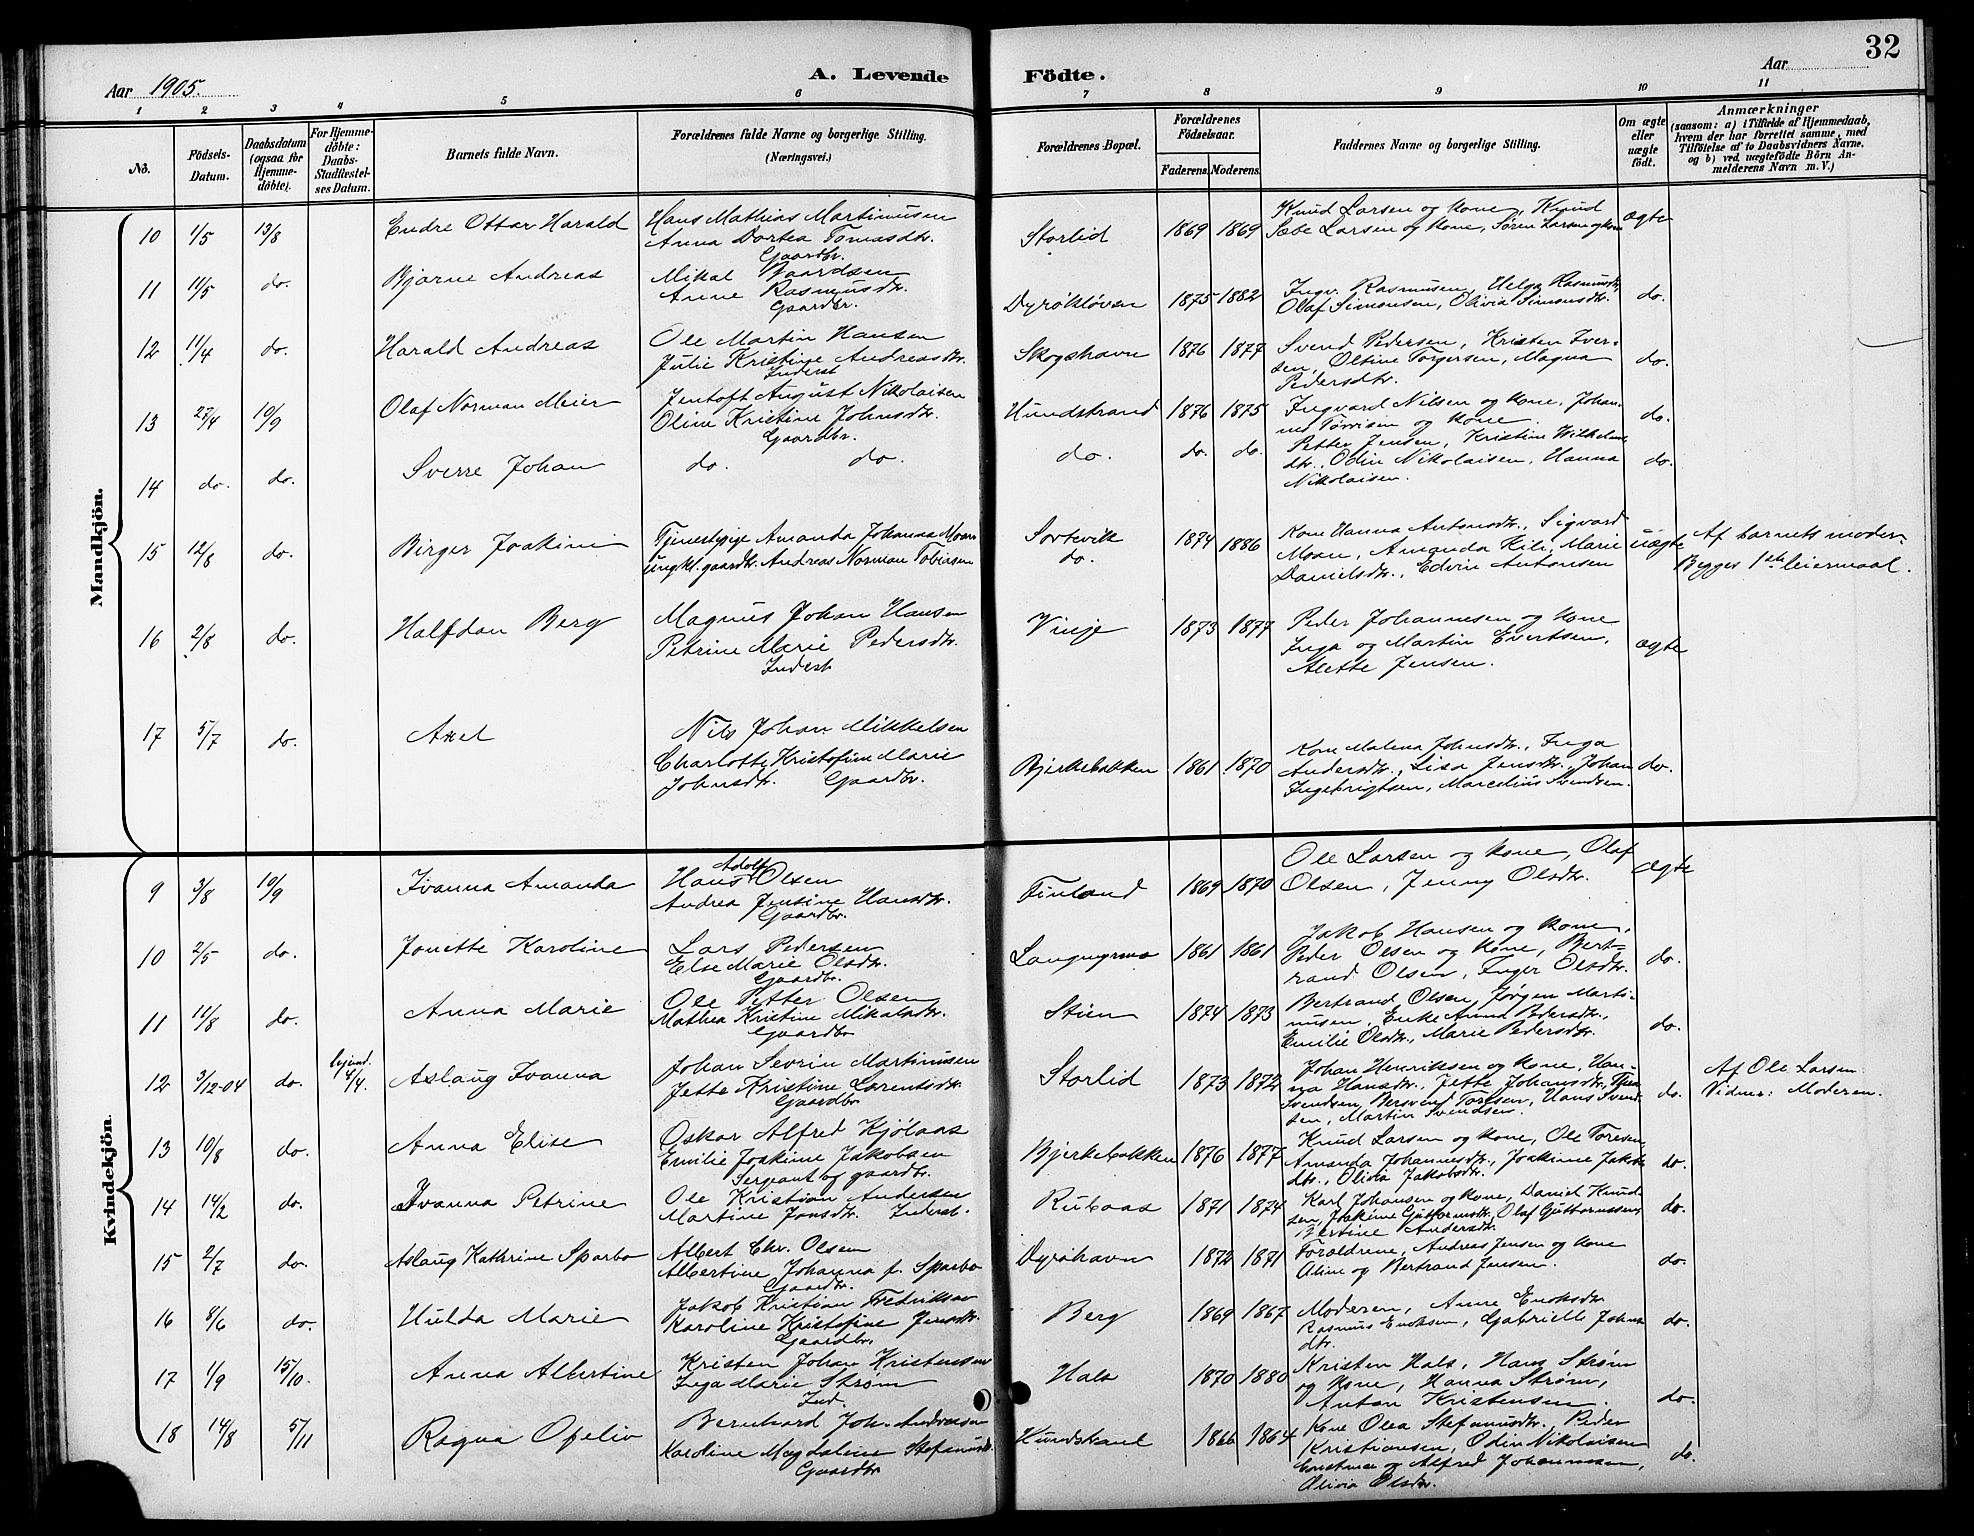 32
Aar 1905.
A. Levende Födte.
Aar
1 2 3 4 5 6 7 8 9 10 11
No.
Födsels-Datum.
Daabsdatum (ogsaa for Hjemmedöbte).
For Hjemmedöbte: Daabs-Stadfæstelses Datum.
Barnets fulde Navn.
Forældrenes fulde Navne og borgerlige Stilling. (Næringsvei.)
Forældrenes Bopæl.
Forældrenes Födselsaar.
Faderens. Moderens.
Faddernes Navne og borgerlige Stilling.
Om ægte eller uægte födt.
Anmærkninger
(saasom: a) i Tilfælde af Hjemmedaab, hvem der har forrettet samme, med Tilföielse af to Daabsvidners Navne, og b) ved uægtefödte Börn Anmelderens Navn m. V.)
Mandkjön.
10 1/5 13/8 Endre Ottar Harald Hans Mathias Martinusen Storlid 1869 1869 Knud Larsen og kone, Knud ægte
Anna Dortea Tomasdtr. Sæbe Larsen og kone, Søren Larsen og kone
Gaardbr.
11 11/5 do. Bjarne Andreas Mikal Baardsen Dyrökløven 1875 1882 Ingv. Rasmusen, Helga Rasmusdtr, do.
Anne Rasmusdtr. Olaf Simonsen, Olivia Simonsdtr.
Gaardbr.
12 11/4 do. Harald Andreas Ole Martin Hansen Skogshavn 1876 1877 Svend Pedersen, Kristen Iver- do.
Julie Kristine Andreasdtr. sen, Oltine Torgersen, Magna
Inderst Pedersdtr.
13 27/4 10/9 Olaf Norman Meier Jentoft August Nikolaisen Hundstrand 1876 1875 Ingvard Nilsen og kone, Johan- do.
Oline Kristine Johnsdtr. og kone.
Gaardbr.
14 do. do. Sverre Johan do. do. do. do. do. Petter Jensen, Kristine Wilhelms do.
dtr., Odin Nikolaisen, Hanna
Nikolaisen.
15 12/8 do. Birger Joakim Tjenestepige Amanda Johanna Moan Sortevik 1874 1886 Kone Hanna Antonsdtr., Sigvard uægte Af barnets moder.
ungkl. gaardbr. Andreas Norman Tobiesen do. Moan, Amanda Kil, Marie Begges 1ste leiermaal.
Danielsdtr., Edvin Antonsen
16 2/8 do. Halfdan Berg Magnus Johan Hansen Vinje 1873 1877 Peder Johannesen og kone ægte
Petrine Marie Pedersdtr. Inga og Martin Evertsen,
Inderst Alette Jensen.
17 5/7 do. Axel Nils Johan Mikkelsen Bjerkebakken 1861 1870 Kone Malena Johnsdtr., Inga do.
Charlotte Kristofine Marie Andersdtr., Lisa Jensdtr., Johan
Johnsdtr. Gaardbr. Ingebrigtsen, Marcelius Svendsen.
Kvindekjön.
9 3/8 10/9 Ivanna Amanda Hans Adolf Olsen Finland 1869 1870 Ole Larsen og kone, Olaf ægte
Andrea Jensine Hansdtr. Olsen, Jenny Olsdtr.
Gaardbr.
10 2/5 do. Jonette Karoline Lars Pedersen Langmyrmo 1861 1861 Jakob Hansen og kone, do.
Else Marie Olsdtr. Peder Olsen og kone, Bert-
Gaardbr. rand Olsen, Inger Olsdtr.
11 11/8 do. Anna Marie Ole Petter Olsen Stien 1874 1873 Bertrand Olsen, Jørgen Marti- do.
Mathea Kristine Mikalsdtr. nusen, Enke Anna Pedersdtr.,
Gaardbr. Emilie Olsdtr., Marie Pedersdtr.
12 3/12-04 do. hjemd. 4/4. Aslaug Ivanna Johan Sevrin Martinusen Storlid 1873 1872 Johan Henriksen og kone, Han- do. Af Ole Larsen.
Jette Kristine Lorentsdtr. na Hansdtr., Jette Johansdtr., Vidner: Moderen.
Gaardbr. Svendsen, Bersvend Toresen, Hans Svend-
sen, Martin Svendsen.
13 10/8 do. Anna Elise Oskar Alfred Kjölaas Bjerkebakken 1876 1877 Knud Larsen og kone, Ole Toresen, do.
Emilie Joakime Jakobsen Amanda Johannesdtr., Joakime Jakobs
Sergeant og gaardbr. dtr., Olivia Jakobsdtr.
14 14/2 do. Ivanna Petrine Ole Kristian Andersen Rubaas 1871 1874 Karl Johansen og kone, Daniel Knud- do.
Martine Jonsdtr. Inderst. sen, Joakime Guttormsdtr., Olaf Guttormssen,
Bertine Andersdtr.
15 2/7 do. Aslaug Kathrine Sparbo Albert Chr. Olsen Dyröhavn 1872 1871 Forældrene, Andreas Jensen og kone do.
Albertine Johanna f. Sparbo Aline og Bertrand Jensen.
Gaardbr.
16 8/6 do. Hulda Marie Jakob Kristian Fredriksen Berg 1869 1867 Moderen, Anne Enoksdtr. do.
Karoline Kristofine Jensdtr. Rasmus Enoksen, Gabrielle Johns
Gaardbr. dtr.
17 1/9 15/10. Anna Albertine Kristen Johan Kristensen Hals 1870 1880 Kristen Hals, Hans Strøm do.
Inga Marie Strøm og kone, Hanna Strøm,
Ind. Anton Kristensen.
18 14/8 5/11 Ragna Ofeliv Bernhard Joh. Andreasen Hundstrand 1866 1864 Kone Olea Stefanusdtr., Peder do.
Karoline Magdalene Stefanusdtr. Kristiansen, Odin Nikolaisen
Gaardbr og Alfred Johannesen,
Olivia Olsdtr.